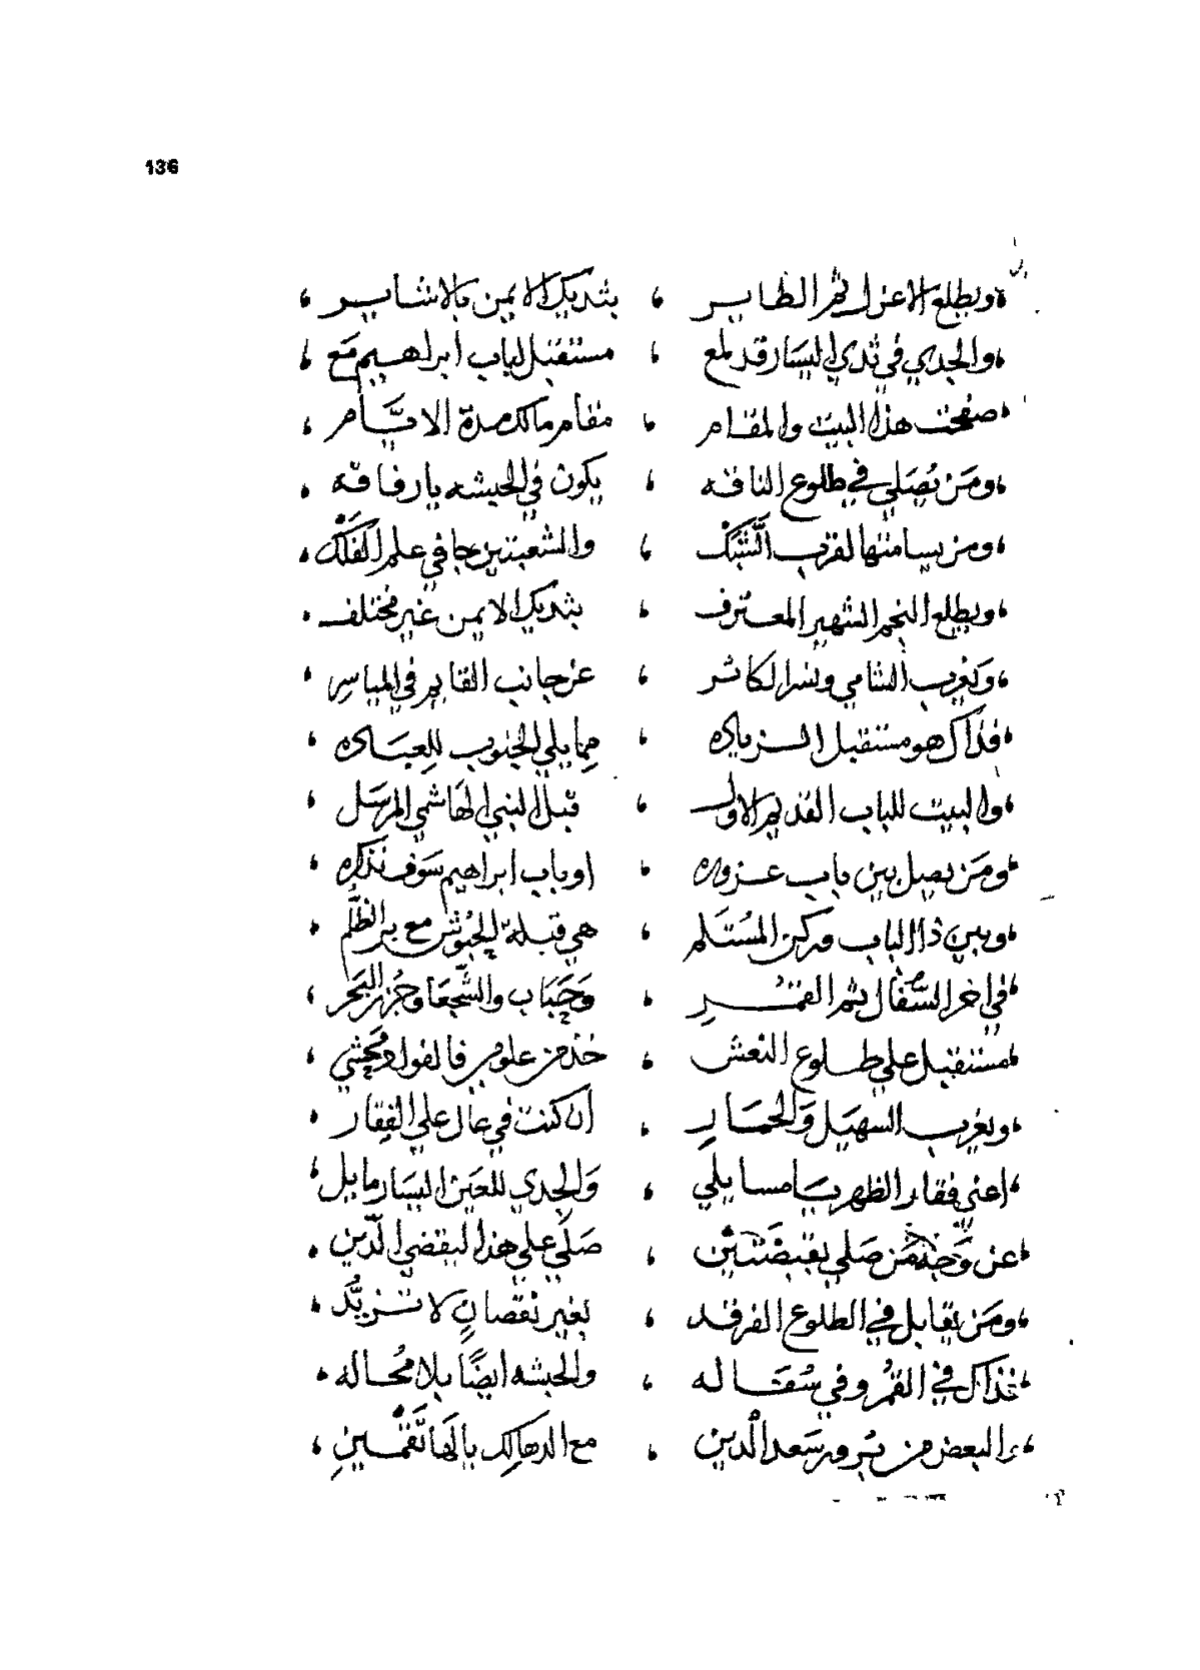 136
ويطلع الاعزل ثم الطاير ، بثديك الايمن بالاشاير ،
والجدي في ثدي اليسار قد لمع ، مستقبل لباب أبراهيم مع ،
صفحت هذا البيت والمقام ، مقام مالك مدة الايَّام ،
ومَن يُصَلي في طلوع الناقه ، يكون في الحبشه يا رفاقه ،
ومن يسامتها لقرب الشَّبَك ، والشعبتين جا في علم الفلك ،
ويطلع النجم الشهير المعترف ، بثديك الايمن غير مختلف ،
وتغرب الشامي ونسر الكاسر ، عن جانب القايم في المياسر ،
فذاك هو مستقبل الزياده ، مما يلي الجنوب للعباده ،
والبيت للباب القديم الاول ، قبل النبي الهاشمي المرسَل ،
ومَن يصل بين باب عزوره ، او باب ابراهيم سَوف نذكره ،
وبين ذا الباب وركن المسُتَلم ، هي قبلة الحبُوش مع بر الظُّلم ،
في اخر السُّفال ثم القمُر ، وَحَبَاب والشَّجعَا وجُزر البَحر ،
مستقبل علي طلوع النعش ، خذ من علومي فالقول محشي ،
وتغرب السهيَل والحمَار ، أن كنت في عال علي الفِقار ،
اعني فقار الظهر يَا مسايلي ، وَالجدي للعَين اليسَار مايل ،
عن وَجهه مَن صَلي بقبضَتَين ، صَلَّي علي هذا ليقضي الدَّين ،
ومَن يقابل في الطلوع الفرقد ، بغير نقصانٍ لا تزيَّد ،
فذاك في القمُر وفي سُفَاله ، والحبشه ايضًا بلا مُحاله ،
والبعض من بَر سَعد الدين ، مع الدهالك يا لهَا